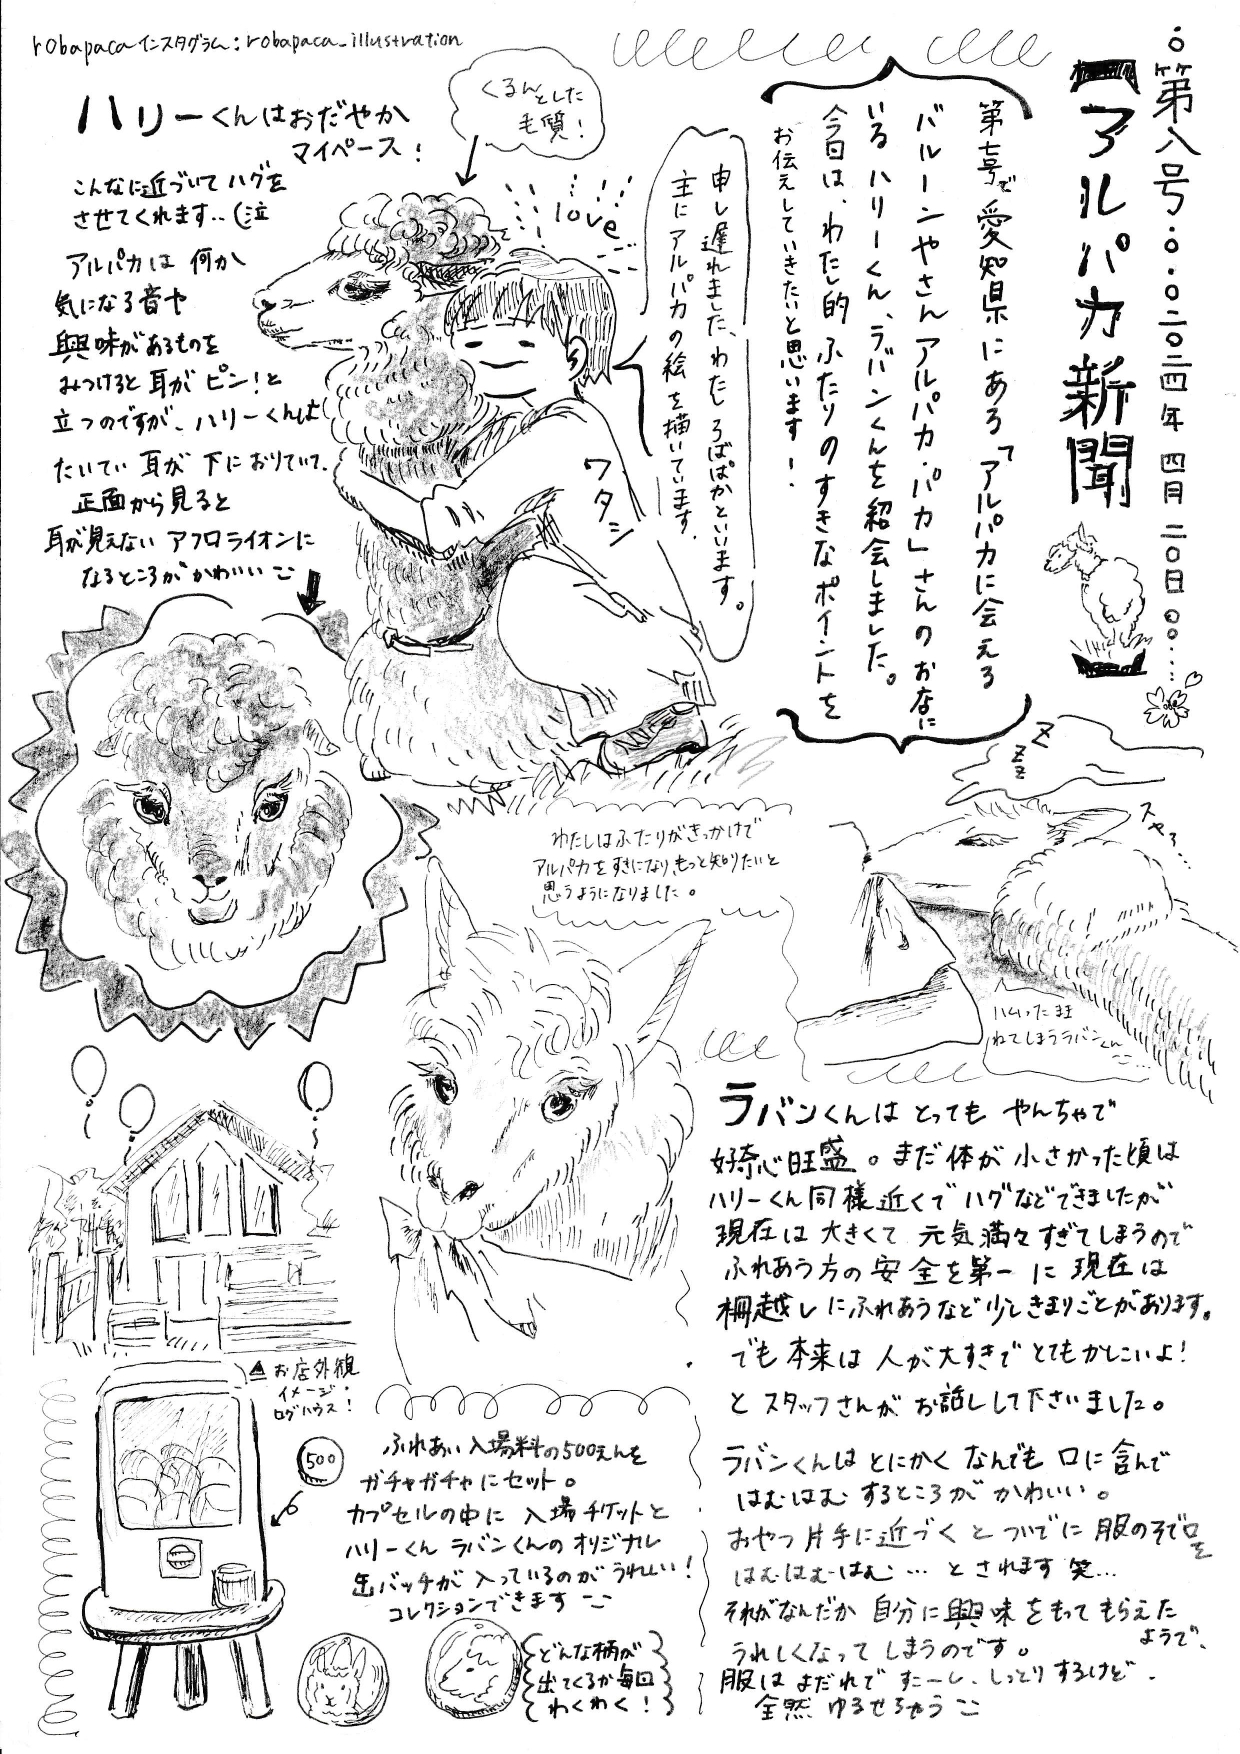 第八号
二〇二四年 四月 二〇日
アルパカ新聞
第七号で愛知県にある「アルパカに会える
バルーンやさんアルパカ・パカ」さんのおなに
いるハリーくん、ラバンくんを紹会しました。
今日は、わたし的ふたりのすきなポイントを
お伝えしていきたいと思います！
申し遅れました、わたしろばぱかといいます。
主にアルパカの絵を描いています.
robapacaインスタグラム：robapaca_illustration
くるんとした
毛質！
love
ワタシ
ハリーくんはおだやか
マイペース！
こんなに近づいてハグを
させてくれます‥(泣
アルパカは 何か
気になる音や
興味があるものを
みつけると耳がピン！と
立つのですが、ハリーくんは
たいてい 耳が 下におりていて、
正面から見ると
耳が見えない アフロライオンに
なるところが かわいい
わたしはふたりがきっかけで
アルパカをすきになり、もっと知りたいと
思うようになりました。
zzz
スヤァ…
ハムったまま
ねてしまうラバンくん
ラバンくんは とっても やんちゃで
好奇心旺盛。まだ体が 小さかった頃は
ハリーくん同様近くで ハグなどできましたが
現在は 大きくて 元気満々すぎてしまうので
ふれあう方の 安全を第一 に 現在は
柵越しにふれあうなど少しきまりごとがあります。
でも本来は 人が大すきで とてもかしこいよ！
と スタッフさんが お話しして下さいました。
ラバンくんは とにかく なんでも 口に含んで
はむはむ するところが かわいい。
おやつ片手に近づく と ついでに 服のそで口を
はむはむはむ … と されます 笑…
それがなんだか 自分に興味をもってもらえた
ようで、
うれしくなって しまうのです。
服は よだれで すこーし、しっとりするけど.
全然 ゆるせちゃう
お店外観
イメージ！
ログハウス！
500
ふれあい入場料の500えんを
ガチャガチャにセット。
カプセルの中に 入場チケットと
ハリーくん ラバンくんの オリジナル
缶バッチが 入っているのが うれしい！
コレクションできます
どんな柄が
出てくるか毎回
わくわく！